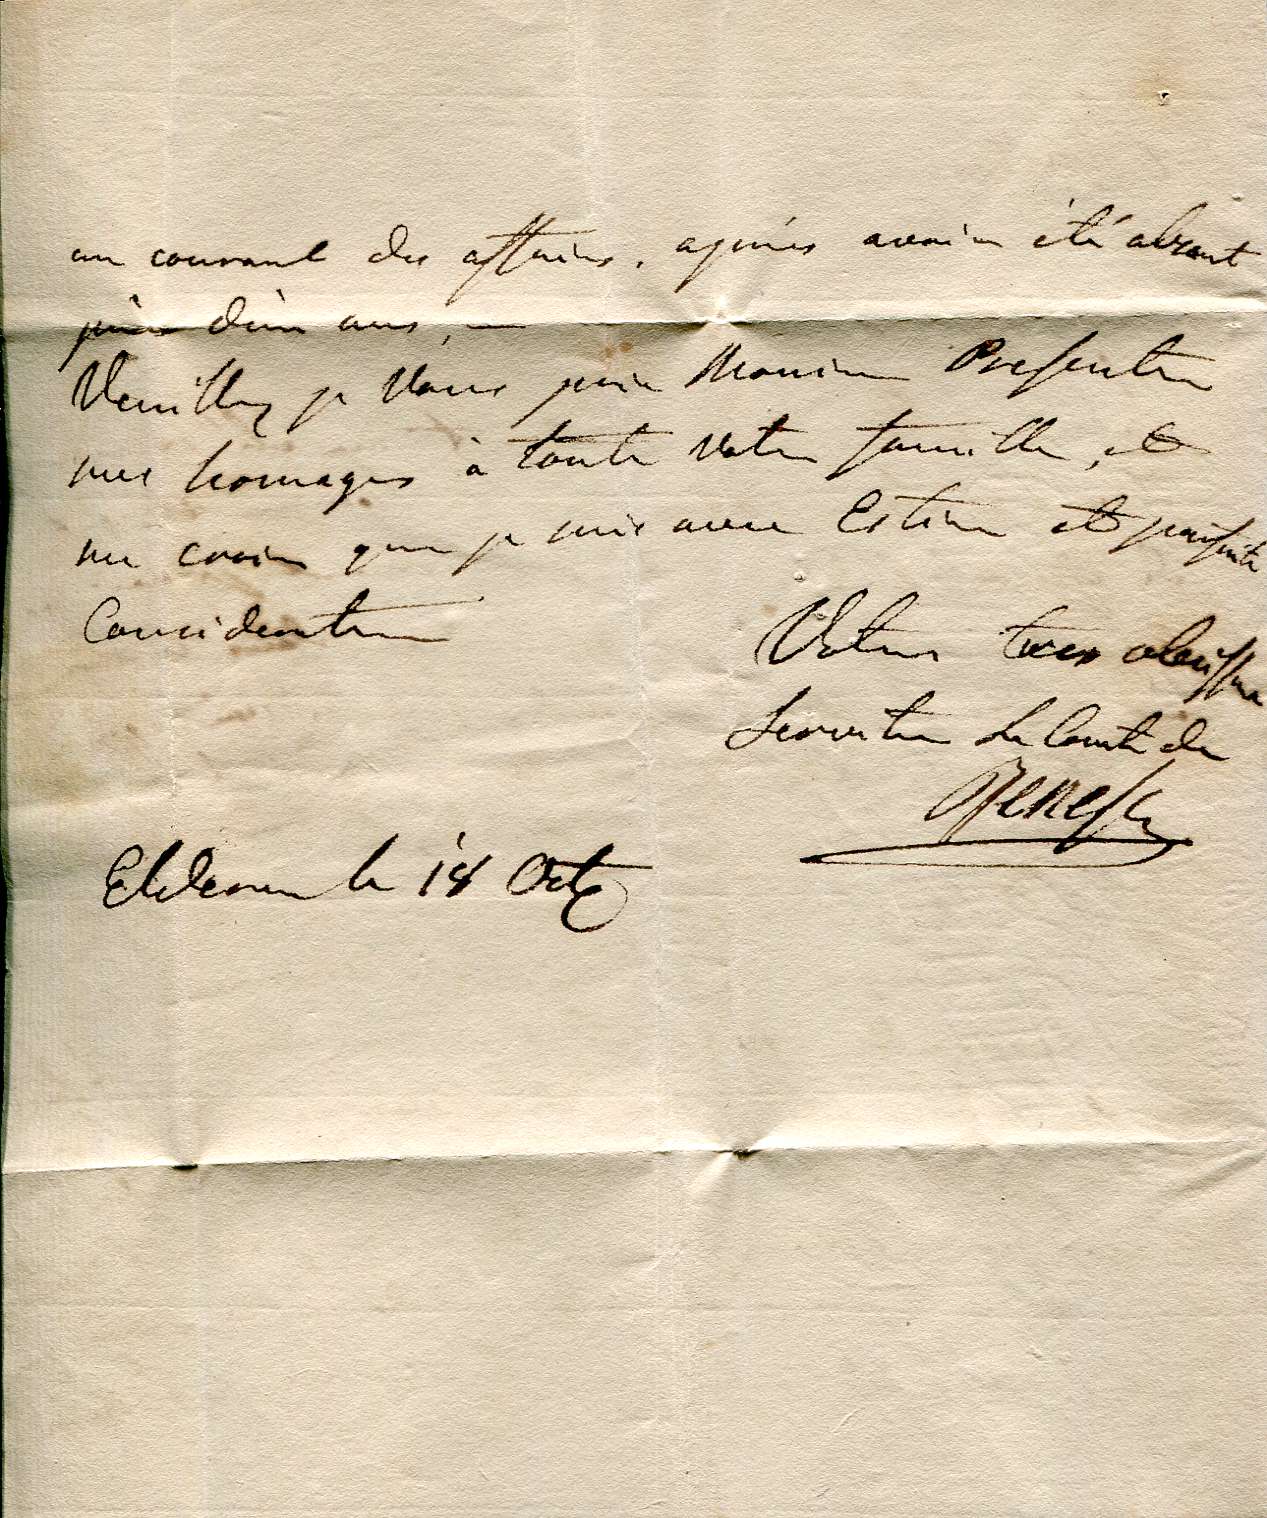 au courant des affaires, après avoir été absent
près d'un ans,
Veuillez je Vous prie Monsieur Presenter
mes homages à toute Votre famille, et
me croire que je suis avec Estime et parfaite
Consideration
Votre tres obeissant
Serviteur Le Comte de
Renesse
Elderen le 18 Octb